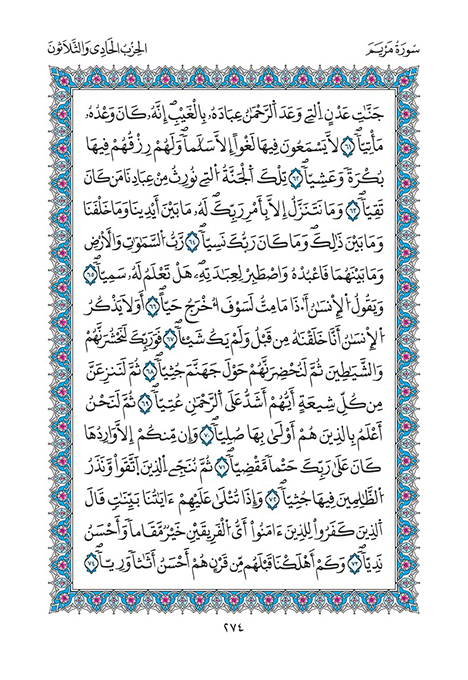 سُورَةُ مَرْيَمَ الحِزْبُ الحَادِي وَالثَّلَاثُونَ
جَنَّٰتِ عَدْنٍ اِلتِے وَعَدَ اَلرَّحْمَٰنُ عِبَادَهُۥ بِالْغَيْبِۖ إِنَّهُۥ كَانَ وَعْدُهُۥ
مَأْتِيّاٗۖ ٦١ لَّا يَسْمَعُونَ فِيهَا لَغْواً اِلَّا سَلَٰماٗۖ وَلَهُمْ رِزْقُهُمْ فِيهَا
بُكْرَةٗ وَعَشِيّاٗۖ ٦٢ تِلْكَ اَلْجَنَّةُ اُلتِے نُورِثُ مِنْ عِبَادِنَا مَن كَانَ
تَقِيّاٗۖ ٦٣ وَمَا نَتَنَزَّلُ إِلَّا بِأَمْرِ رَبِّكَۖ لَهُۥ مَا بَيْنَ أَيْدِينَا وَمَا خَلْفَنَا
وَمَا بَيْنَ ذَٰلِكَۖ وَمَا كَانَ رَبُّكَ نَسِيّاٗۖ ٦٤ رَّبُّ اُلسَّمَٰوَٰتِ وَالْأَرْضِ
وَمَا بَيْنَهُمَا فَاعْبُدْهُ وَاصْطَبِرْ لِعِبَٰدَتِهِۦۖ هَلْ تَعْلَمُ لَهُۥ سَمِيّاٗۖ ٦٥
وَيَقُولُ اُلْإِنسَٰنُ أَ.ذَا مَا مِتُّ لَسَوْفَ أُخْرَجُ حَيّاًۖ ٦٦ أَوَلَا يَذْكُرُ
اُلْإِنسَٰنُ أَنَّا خَلَقْنَٰهُ مِن قَبْلُ وَلَمْ يَكُ شَيْـٔاٗۖ ٦٧ فَوَرَبِّكَ لَنَحْشُرَنَّهُمْ
وَالشَّيَٰطِينَ ثُمَّ لَنُحْضِرَنَّهُمْ حَوْلَ جَهَنَّمَ جُثِيّاٗۖ ٦٨ ثُمَّ لَنَنزِعَنَّ
مِن كُلِّ شِيعَةٍ أَيُّهُمْ أَشَدُّ عَلَى اَلرَّحْمَٰنِ عُتِيّاٗۖ ٦٩ ثُمَّ لَنَحْنُ
أَعْلَمُ بِالذِينَ هُمْ أَوْلَىٰ بِهَا صُلِيّاٗۖ ٧٠ وَإِن مِّنكُمْ إِلَّا وَارِدُهَا
كَانَ عَلَىٰ رَبِّكَ حَتْماٗ مَّقْضِيّاٗۖ ٧١ ثُمَّ نُنَجِّے اِلذِينَ اَتَّقَواْ وَّنَذَرُ
اُلظَّٰلِمِينَ فِيهَا جُثِيّاٗۖ ٧٢ وَإِذَا تُتْلَىٰ عَلَيْهِمْ ءَايَٰتُنَا بَيِّنَٰتٖ قَالَ
اَلذِينَ كَفَرُواْ لِلذِينَ ءَامَنُواْ أَيُّ اُلْفَرِيقَيْنِ خَيْرٞ مَّقَاماٗ وَأَحْسَنُ
نَدِيّاٗۖ ٧٣ وَكَمْ أَهْلَكْنَا قَبْلَهُم مِّن قَرْنٍ هُمْ أَحْسَنُ أَثَٰثاٗ وَرِيّاٗۖ ٧٤
٢٧٤